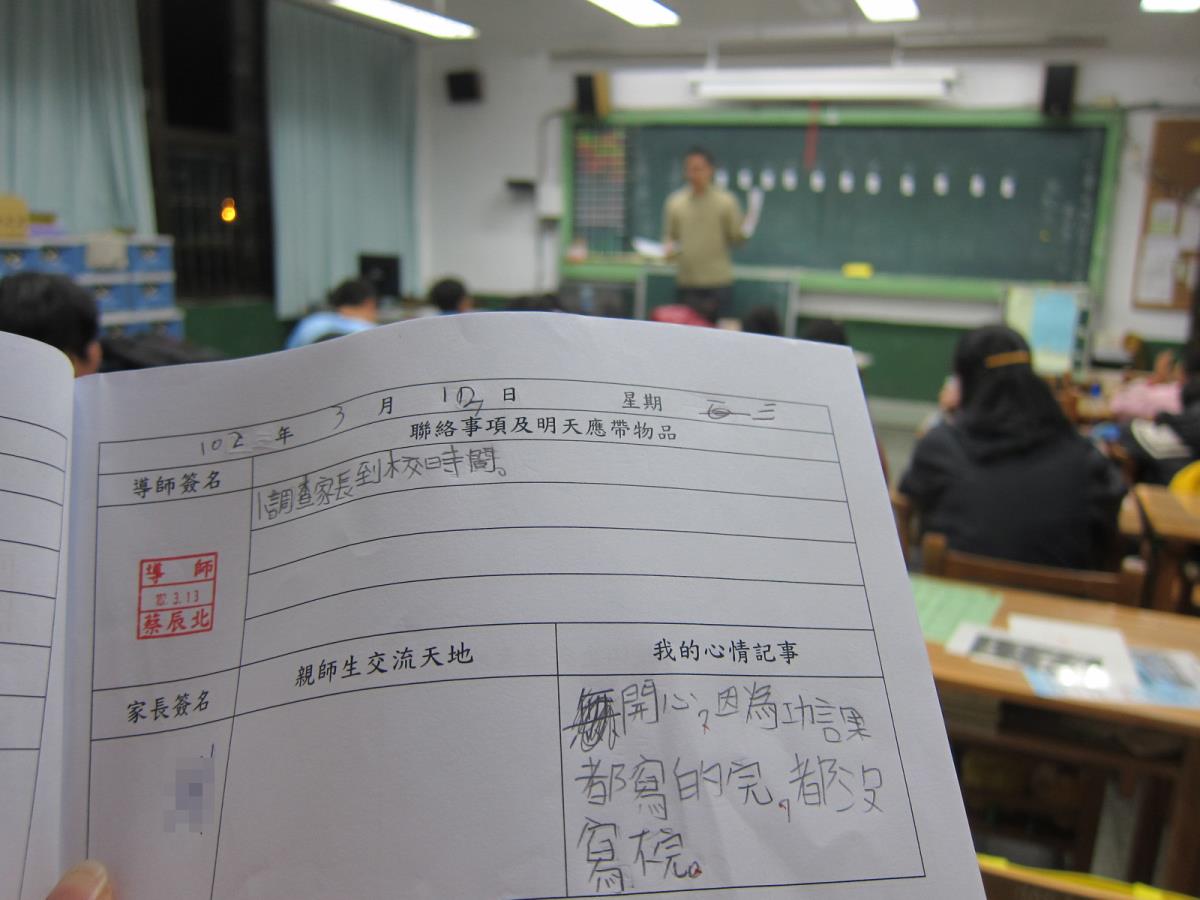 102年 3月 13日 星期 三
聯絡事項及明天應帶物品
導師簽名
1調查家長到校時間。
導 師
102.3.13
蔡辰北
親師生交流天地
我的心情記事
家長簽名
開心,因為功課
都寫的完,都沒
寫梡。